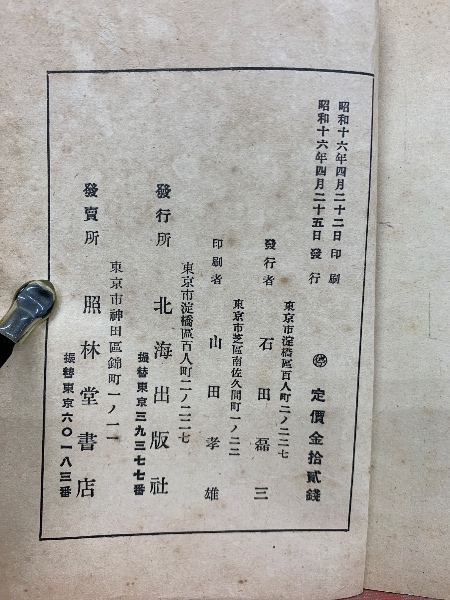 昭和十六年四月二十二日印刷
昭和十六年四月二十五日發行
停 定價金拾貳錢
東京市淀橋區百人町二ノ二二七
發行者 石田磊三
東京市芝區南佐久間町一ノ二二
印刷者 山田孝雄
東京市淀橋區百人町二ノ二二七
發行所 北海出版社
振替東京三九三七七番
東京市神田區錦町一ノ一一
發賣所 照林堂書店
振替東京六〇一八三番